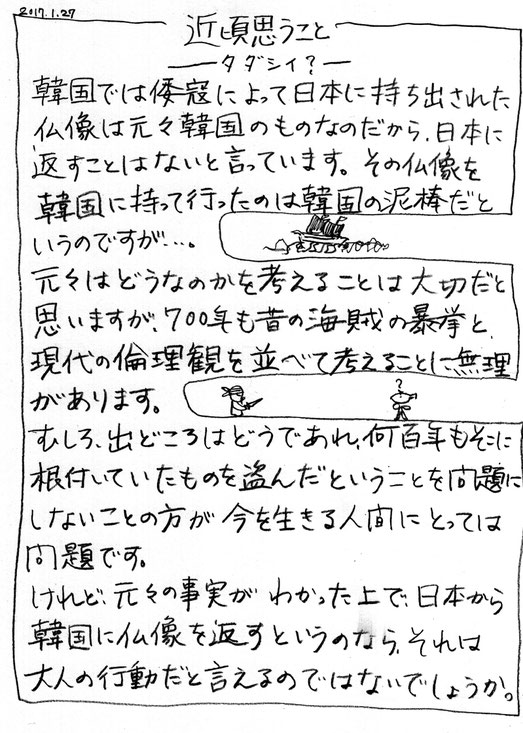 2017.1.27
近頃思うこと
―タダシイ?―
韓国では倭寇によって日本に持ち出された
仏像は元々韓国のものなのだから、日本に
返すことはないと言っています。その仏像を
韓国に持って行ったのは韓国の泥棒だと
いうのですが…。
元々はどうなのかを考えることは大切だと
思いますが、700年も昔の海賊の暴挙と、
現代の倫理観を並べて考えることに無理
があります。
?
むしろ、出どころはどうであれ、何百年もそこに
根付いていたものを盗んだということを問題に
しないことの方が今を生きる人間にとっては
問題です。
けれど、元々の事実がわかった上で、日本から
韓国に仏像を返すというのなら、それは
大人の行動だと言えるのではないでしょうか。